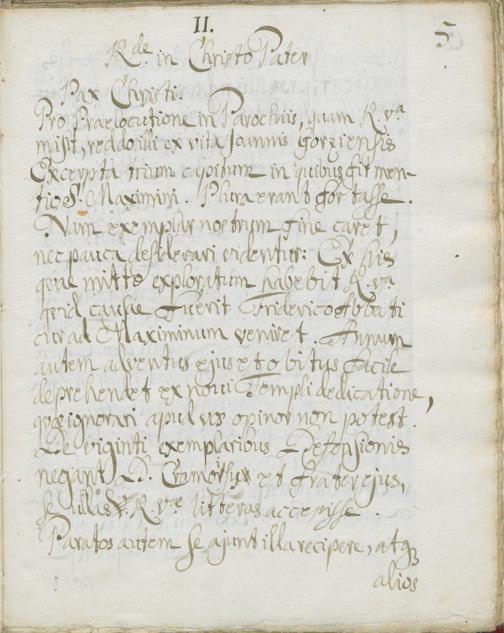 II.
5
R.de in Christo Pater
Pax Christi.
Pro Praelocutione in Parochiis, quam R. va
misit, reddo illi ex vita Joannis Gorziensis
Excerpta trium capitum in quibus fit men-
tio S. Maximini. Plura erant fortasse.
Nam exemplar nostrum fine caret,
nec pauca desiderari videntur: Ex his
quae mitto exploratum habebit R. va
quid causae fuerit Friderico Abbati
cur ad Maximinum veniret. Annum
autem adventus ejus et obitus facile
deprehendet ex novi Templi dedicatione,
quae ignorari apud vos opinor non potest.
De viginti exemplaribus Defensionis
negant D. et frater ejus,
se ullas R. vae litteras accepisse.
Paratos autem se ajunt illa recipere, atq3
alios